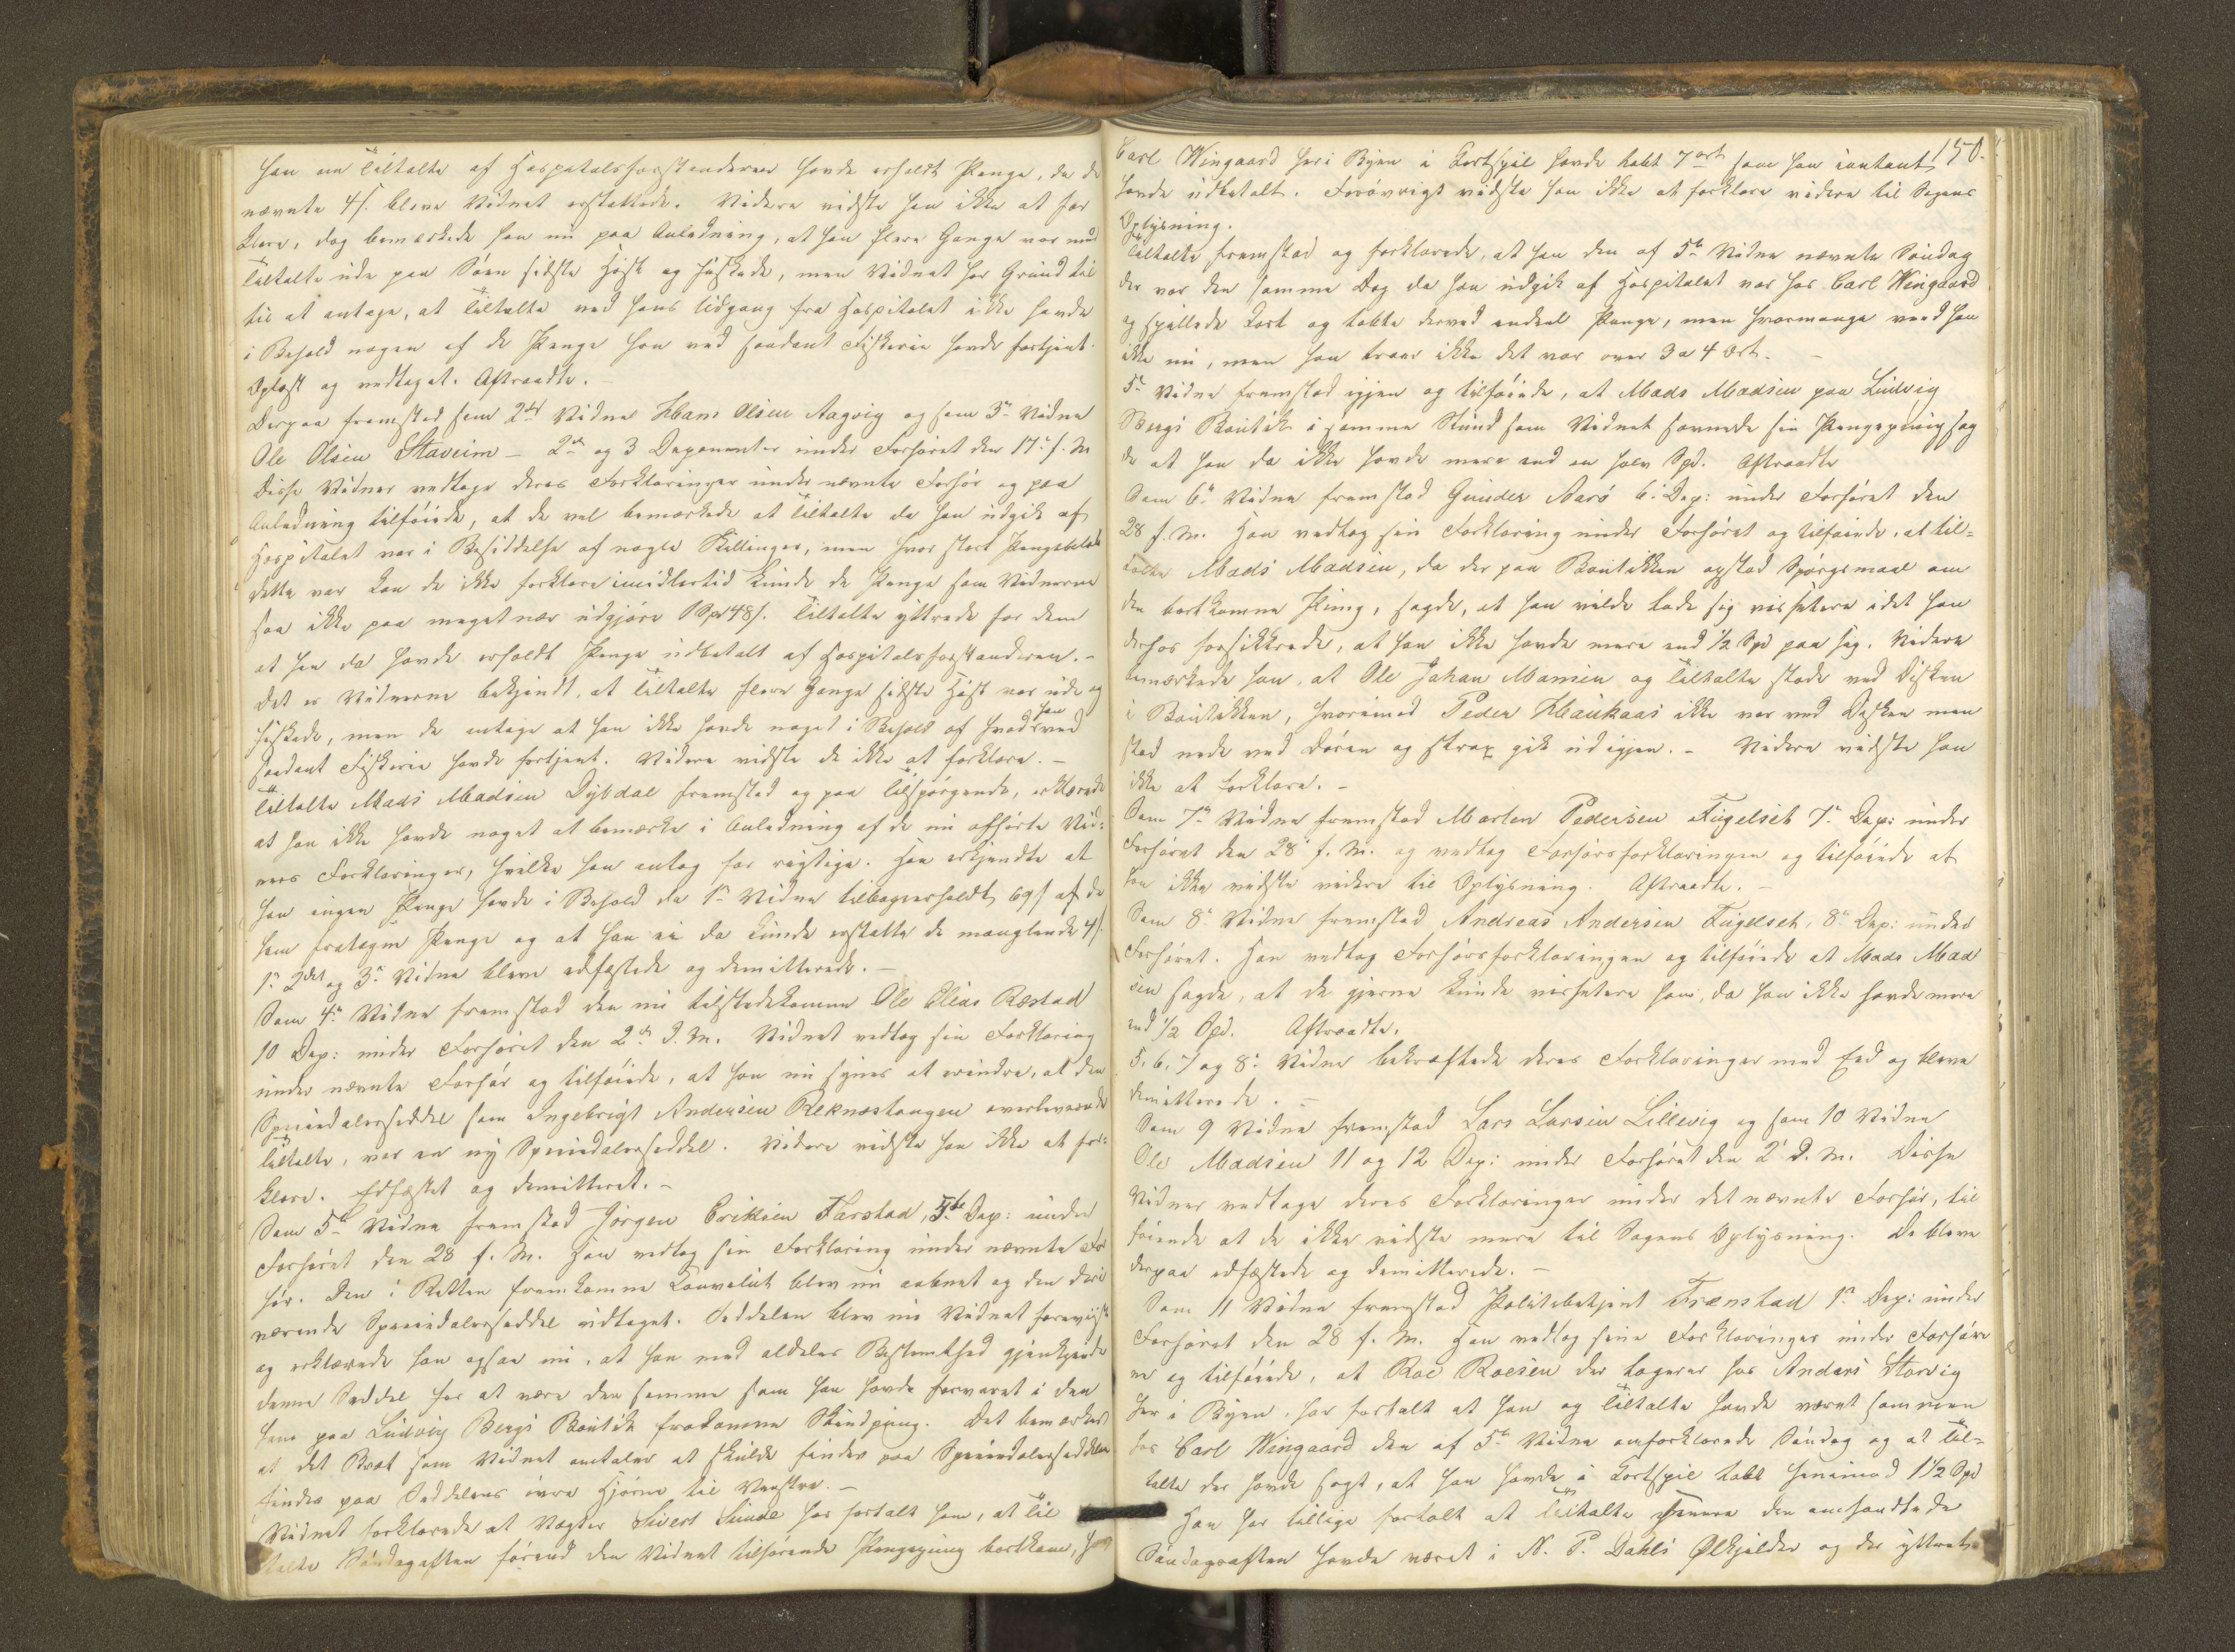 han en Tiltalte af Hospitalsforstanderen havde erholdt Penge, da de
nævnte 4 s. bleve Vidnet erstattede. Videre vidste han ikke at for
klare, dog bemærkede han nu paa Anledning, at han flere Gange var med
Tiltalte ude paa Søen sidste Høst og fiskede, men Vidnet har Grund til
til at antage, at Tiltalte ved hans Udgang fra Hospitalet ikke havde
i Behold nogen af de Penge han ved saadant Fiskerie havde fortjent.
Oplæst og vedtaget. Aftraadte.
Derpaa fremstod som 2det Vidne Hans Olsen Aagvig og som 3die Vidne
Ole Olsen Staveim - 2den og 3 Deponenter under Forhøret den 17de f. M
Disse Vidner vedtoge deres Forklaringer under nævnte Forhør og paa
Anledning tilføiede, at de vel bemærkede at Tiltalte da han udgik af
Hospitalet var i Besiddelse af nogle Skillinger, men hvor stort Pengebeløb
dette var kan de ikke forklare imidlertid kunde de Penge som Vidnerne
saa ikke paa meget nær udgjøre 1 Spd 48 s. Tiltalte yttrede for dem
at han da havde erholdt Penge udbetalt af Hospitalsforstanderen. -
Det er Vidnerne bekjendt, at Tiltalte flere Gange sidste Høst var ude og
fiskede, men de antage at han ikke havde noget i Behold af hvad han ved
saadant Fiskerie havde fortjent. Videre vidste de ikke at forklare. -
Tiltalte Mads Madsen Dybdal fremstod og paa Tilspørgende, erklærede
at han ikke havde noget at bemærke i Anledning af de nu afhørte Vid-
ners Forklaringer, hvilke han antog for rigtige. Han erkjendte at
han ingen Penge havde i Behold da 1ste Vidne tilbageerholdt 69 s af de
ham fratagne Penge og at han ei da kunde erstatte de manglende 4 s.
1ste 2det og 3die Vidne bleve edfæstede og demitterede. -
Som 4de Vidne fremstod den nu tilstedekomne Ole Elias Ræstad
10 Dep: under Forhøret den 2den d. M. Vidnet vedtog sin Forklaring
under nævnte Forhør og tilføiede, at han nu synes at erindre, at den
Speciedalerseddel som Ingebrigt Andersen Reknæstangen overleverede
Tiltalte, var en ny Speciedalerseddel. Videre vidste han ikke at for-
klare. Edfæstet og demitteret. -
Som 5te Vidne fremstod Jørgen Eriksen Farstad, 5te Dep: under
Forhøret den 28 f. M. Han vedtog sin Forklaring under nævnte For
hør. Den i Retten fremkomne Convolut blev nu aabnet og den deri
værende Speciedalerseddel udtaget. Seddelen blev nu Vidnet foreviist
og erklærede han ogsaa nu, at han med aldeles Bestemthed gjenkjendte
denne Seddel for at være den samme som han havde forvaret i den
ham paa Ludvig Bergs Boutik frakomne Skindpung. Det bemærkes
at det Bræk som Vidnet omtaler at skulde findes paa Speciedalerseddelen
findes paa Seddelens øvre Hjørne til Venstre. -
Vidnet forklarede at Vægter Sivert Sunde har fortalt ham, at Til
talte Søndagaften førend den Vidnet tilhørende Pengepung bortkom, hos
150.
Carl Wingaard her i Byen i Kortspil havde tabt 7 ort som han contant
havde udbetalt. Forøvrigt vidste han ikke at forklare videre til Sagens
Oplysning.
Tiltalte fremstod og forklarede, at han den af 5te Vidne nævnte Søndag
der var den samme Dag da han udgik af Hospitalet var hos Carl Wingaard
og spillede Kort og tabte derved endeel Penge, men hvormange veed han
ikke nu, men han troer ikke det var over 3 a 4 Ort. -
5te Vidne fremstod igjen og tilføiede, at Mads Madsen paa Ludvig
Bergs Boutik i samme Stund som Vidnet savnede sin Pengepung sag
de at han da ikke havde mere end en halv Spd. Aftraadte
Som 6te Vidne fremstod Gunder Aarø 6te Dep: under Forhøret den
28 f. M. Han vedtog sin Forklaring under Forhøret og tilføiede, at Til-
talte Mads Madsen, da der paa Boutikken opstod Spørgsmaal om
den bortkomne Pung, sagde, at han vilde lade sig visitere idet han
derhos forsikkrede, at han ikke havde mere end 1/2 Spd paa sig. Videre
bemærkede han, at Ole Johan Monsen og Tiltalte stode ved Disken
i Boutikken, hvorimod Peder Haukaas ikke var ved Disken men
stod nede ved Døren og strax gik ud igjen. - Videre vidste han
ikke at forklare. -
Som 7de Vidne fremstod Morten Pedersen Fugelset 7de Dep: under
Forhøret den 28 f. M. og vedtog Forhørsforklaringen og tilføiede at
han ikke vidste videre til Oplysning. Aftraadte. -
Som 8de Vidne fremstod Andreas Andersen Fugelset, 8de Dep: under
Forhøret. Han vedtog Forhørsforklaringen og tilføiede at Mads Mad
sen sagde, at de gjerne kunde visitere ham, da han ikke havde mere
end 1/2 Spd. Aftraadte.
5, 6, 7 og 8de Vidne bekræftede deres Forklaringer med Eed og bleve
demitterede. -
Som 9 Vidne fremstod Lars Larsen Lillevig og som 10 Vidne
Ole Madsen 11 og 12 Dep: under Forhøret den 2 d. M. Disse
Vidner vedtoge deres Forklaringer under det nævnte Forhør, til
føiende at de ikke vidste mere til Sagens Oplysning. De bleve
derpaa edfæstede og demitterede. -
Som 11 Vidne fremstod Politibetjent Frænstad 1ste Dep: under
Forhøret den 28 f. M. Han vedtog sine Forklaringer under Forhøre
ne og tilføiede, at Roe Roesen der logerer hos Anders Storvig
her i Byen, har fortalt at han og Tiltalte havde været sammen
hos Carl Wingaard den af 5te Vidne omforklarede Søndag og at Til-
talte der havde sagt, at han havde i Kortspil tabt henimod 1 1/2 Spd
Han har tillige fortalt at Tiltalte senere den omhandlede
Søndagsaften havde været i N. P. Dahls Ølkjelder og der yttret